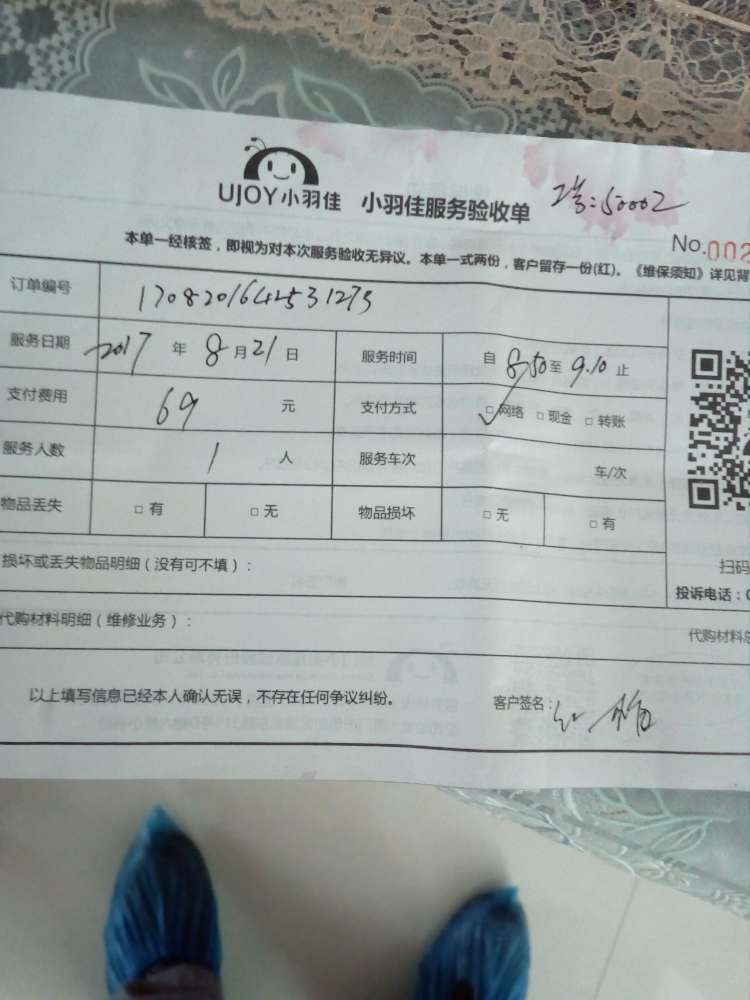 UJOY小羽佳 小羽佳服务验收单 工号:50002
No.002
本单一经核签，即视为对本次服务验收无异议。本单一式两份，客户留存一份(红)。《维保须知》详见背
订单编号 1708201642531275
服务日期 2017 年 8 月 21 日 服务时间 自 8.50 至 9.10 止
支付费用 69 元 支付方式 □网络 □现金 □转账
服务人数 1 人 服务车次 车/次
物品丢失 □有 □无 物品损坏 □无 □有
扫码
损坏或丢失物品明细（没有可不填）：
投诉电话：
代购材料明细（维修业务）：
代购材料总
以上填写信息已经本人确认无误，不存在任何争议纠纷。 客户签名：